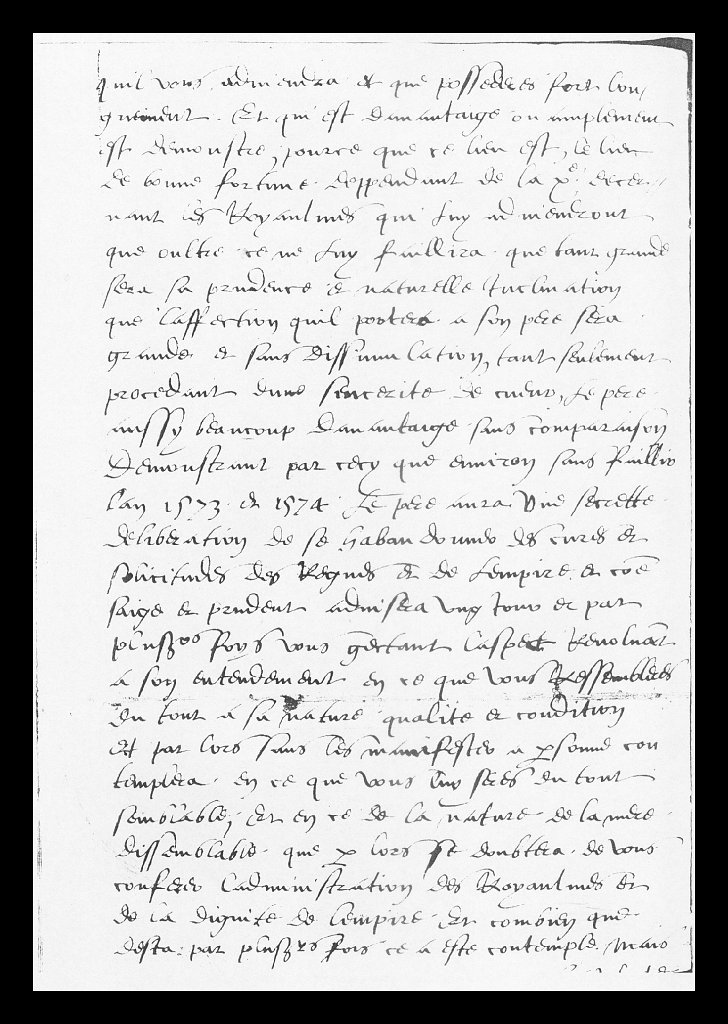 quil vous adviendra et que possederes fort lon,
guement. Et qui est davantaige ou amplement
est demonstre, pource que ce lieu est, le lieu
de bonne fortune deppendant de la xe, decer,
nant les Royaulmes qui luy adviendront
que oultre ce ne luy faillira que tant grande
sera sa prudence et naturelle Inclination
que laffection quil portera a son pere sera
grande et sans dissimulation, tant seulement
procedant dune sencerite de cueur, Le pere
aussy beaucoup davantaige sans comparaison
Demonstrant par cecy que environ sans faillir
lan 1573 et 1574 Le pere aura Une secrette
deliberation de se habandonner des cures et
solicitudes des Regnes et de Lempire et coē
saige et prudent advisera ung Jour et par
pluszrs foys vous gectant laspect Revoluāt
a son entendement en ce que vous Ressembleres
du tout a sa nature qualite et condition
Et par lors sans les manifester a psonne con
templera en ce que vous luy seres du tout
semblable, Et en ce de la nature de la mere
dissemblable que p lors se doubtera de vous
conferer ladministration des Royaulmes et
de la dignite de lempire Et combien que
desia par pluszrs fois ce a este contemple Mais